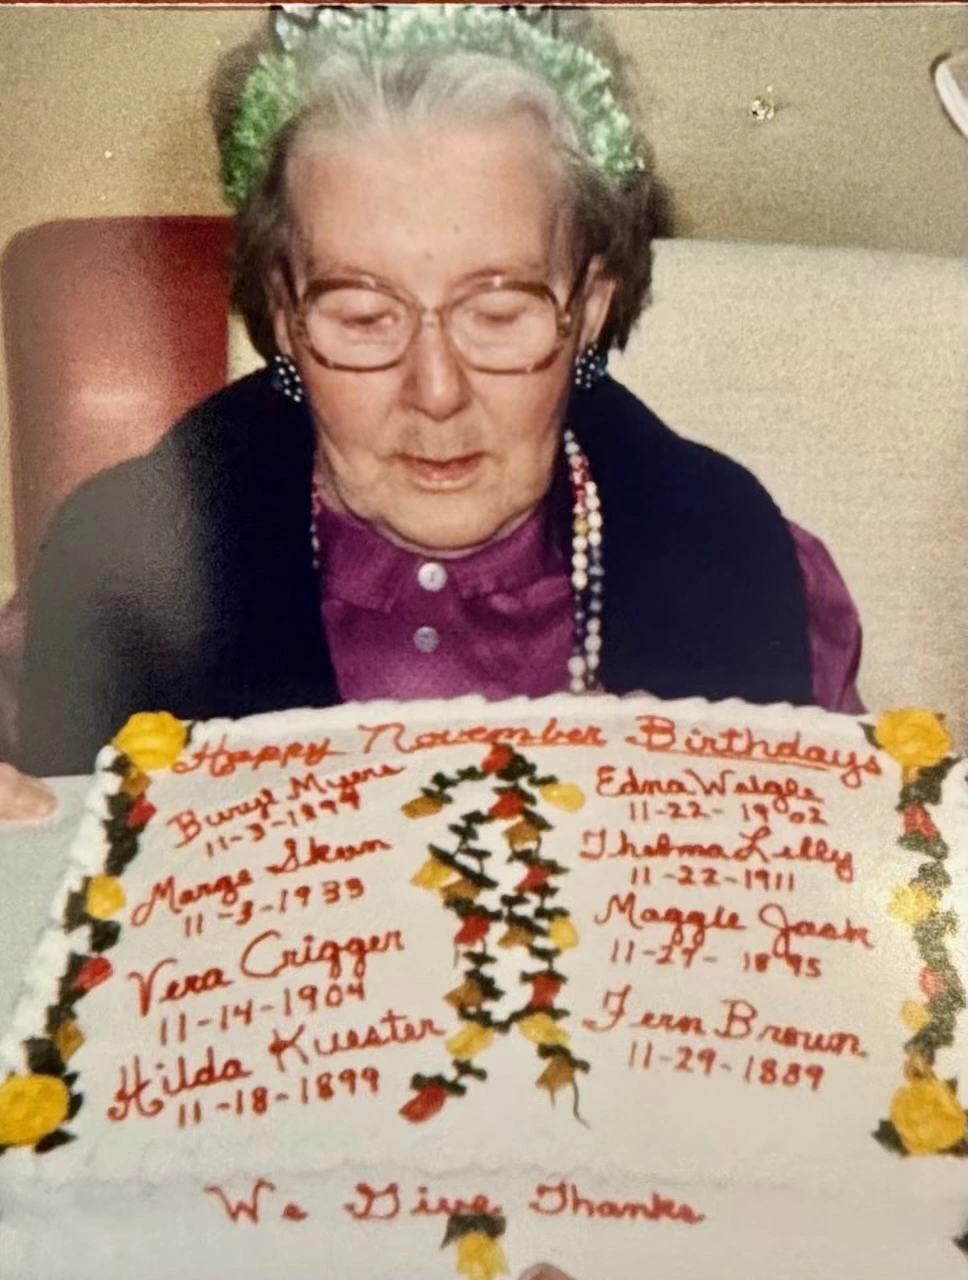 Happy November Birthdays
Buryl Myers
11-3-1894
Marge Skun
11-3-1933
Vera Crigger
11-14-1904
Hilda Kuester
11-18-1899
Edna Weigle
11-22-1902
Thelma Lilly
11-22-1911
Maggie
11-27-1895
Fern Brown
11-29-1889
We Give Thanks